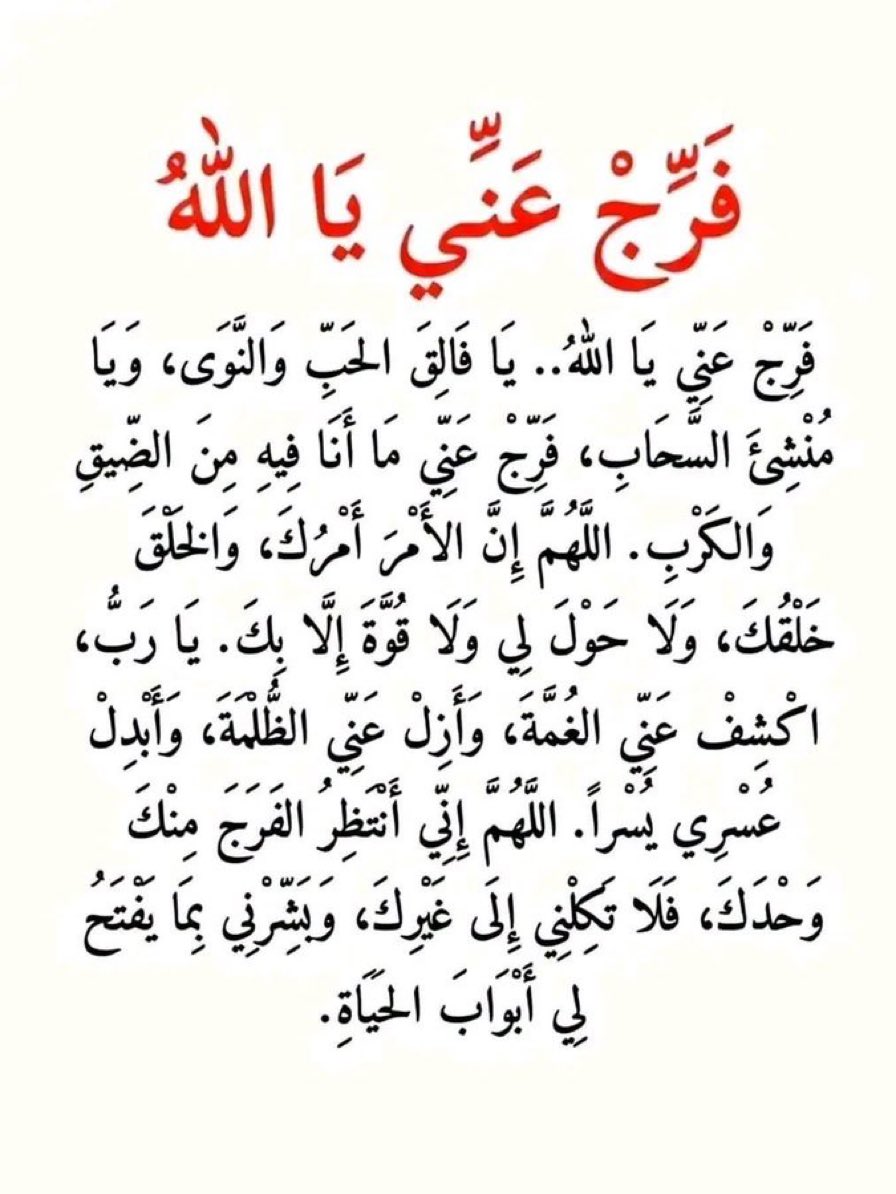 فَرِّجْ عَنِّي يَا اللهُ
فَرِّجْ عَنِّي يَا اللهُ.. يَا فَالِقَ الحَبِّ وَالنَّوَى، وَيَا
مُنْشِئَ السَّحَابِ، فَرِّجْ عَنِّي مَا أَنَا فِيهِ مِنَ الضِّيقِ
وَالكَرْبِ. اللَّهُمَّ إِنَّ الأَمْرَ أَمْرُكَ، وَالخَلْقَ
خَلْقُكَ، وَلَا حَوْلَ لِي وَلَا قُوَّةَ إِلَّا بِكَ. يَا رَبُّ،
اكْشِفْ عَنِّي الغُمَّةَ، وَأَزِلْ عَنِّي الظُّلْمَةَ، وَأَبْدِلْ
عُسْرِي يُسْراً. اللَّهُمَّ إِنِّي أَنْتَظِرُ الفَرَجَ مِنْكَ
وَحْدَكَ، فَلَا تَكِلْنِي إِلَى غَيْرِكَ، وَبَشِّرْنِي بِمَا يَفْتَحُ
لِي أَبْوَابَ الحَيَاةِ.